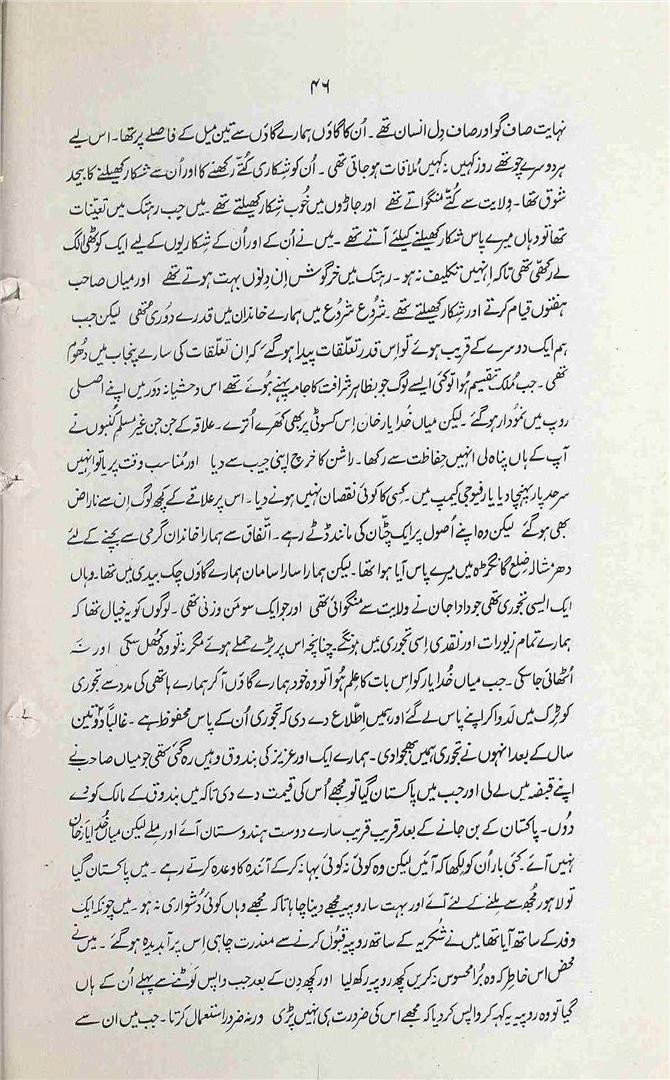 ۴۶
نہایت صاف گو اور صاف دِل انسان تھے ۔ اُن کا گاؤں ہمارے گاؤں سے تین میل کے فاصلے پر تھا۔ اس لیے
ہر دوسرے چوتھے روز کہیں نہ کہیں مُلاقات ہو جاتی تھی ۔ اُن کو شِکاری کُتّے رکھنے کا اور اُن سے شکار کھیلنے کا بیحد
شوق تھا ۔ وِلایت سے کُتّے منگواتے تھے اور جاڑوں میں خُوب شِکار کھیلتے تھے ۔ میں جب رہتک میں تعینات
تھا تو وہاں میرے پاس شکار کھیلنے کیلئے آتے تھے ۔ میں نے اُن کے اور اُن کے شکاریوں کے لیے ایک کوٹھی الگ
لے رکھی تھی تاکہ انہیں تکلیف نہ ہو ۔ رہتک میں خرگوش اِن دِنوں بہت ہوتے تھے اور میاں صاحب
ہفتوں قیام کرتے اور شکار کھیلتے تھے ۔ شرُوع شرُوع میں ہمارے خاندان میں قدرے دُوری تھی لیکن جب
ہم ایک دوسرے کے قریب ہوئے تو اِس قدر تعلقات پیدا ہو گئے کہ اِن تعلقات کی سارے پنجاب میں دھُوم
تھی ۔ جب مُلک تقسیم ہُوا تو کئی ایسے لوگ جو بظاہر شرافت کا جامہ پہنے ہُوئے تھے اس وحشیانہ دَور میں اپنے اصلی
روپ میں نمُودار ہو گئے ۔ لیکن میاں خُدا یار خان اِس کسوٹی پر بھی کھرے اُترے ۔ علاقہ کے جن جن غیر مسلم کُنبوں نے
آپ کے ہاں پناہ لی انہیں حِفاظت سے رکھا ۔ راشن کا خرچ اپنی جیب سے دیا اور مُناسب وقت پر یا تو انہیں
سرحد پار پہنچا دیا یا رفیوجی کیمپ میں ۔ کِسی کا کوئی نقصان نہیں ہونے دیا ۔ اس پر علاقے کے کچھ لوگ اِن سے ناراض
بھی ہو گئے لیکن وہ اپنے اُصول پر ایک چٹّان کی مانند ڈٹے رہے ۔ اتّفاق سے ہمارا خاندان گرمی سے بچنے کے لئے
دھرمشالہ ضلع کانگڑہ میں میرے پاس آیا ہوا تھا ۔ لیکن ہمارا سارا سامان ہمارے گاؤں چک بیدی میں تھا۔ وہاں
ایک ایسی تجوری تھی جو دادا جان نے ولایت سے منگوائی تھی اور جو ایک سو من وزنی تھی ۔ لوگوں کو یہ خیال تھا کہ
ہمارے تمام زیورات اور نقدی اِسی تجوری میں ہونگے ۔ چنانچہ اس پر بڑے حملے ہوئے مگر نہ تو وہ کھُل سکی اور نہ
اُٹھائی جا سکی ۔ جب میاں خُدا یار کو اِس بات کا عِلم ہُوا تو وہ خود ہمارے گاؤں آکر ہمارے ہاتھی کی مدد سے تجوری
کو ٹرک میں لدوا کر اپنے پاس لے گئے اور ہمیں اِطلاع دے دی کہ تجوری اُن کے پاس محفوظ ہے ۔ غالباً دو تین
سال کے بعد انہوں نے تجوری ہمیں بھجوا دی ۔ ہمارے ایک اور عزیز کی بندوق وہیں رہ گئی تھی جو میاں صاحب نے
اپنے قبضہ میں لے لی اور جب میں پاکستان گیا تو مجھے اُس کی قیمت دے دی تاکہ میں بندوق کے مالک کو دے
دُوں ۔ پاکستان کے بن جانے کے بعد قریب قریب سارے دوست ہندوستان آئے اور ملے لیکن میاں خُدا یار خان
نہیں آئے ۔ کئی بار اُن کو لِکھا کہ آئیں لیکن وہ کوئی نہ کوئی بہانہ کر کے آئندہ کا وعدہ کرتے رہے ۔ میں پاکستان گیا
تو لاہور مُجھ سے مِلنے کے لئے آئے اور بہت سا روپیہ مجھے دینا چاہا تاکہ مجھے وہاں کوئی دُشواری نہ ہو ۔ میں چونکہ ایک
وفد کے ساتھ آیا تھا میں نے شُکریہ کے ساتھ روپیہ قبُول کرنے سے معذرت چاہی اِس پر آبدیدہ ہو گئے ۔ میں نے
محض اس خاطر کہ وہ بُرا محسوس نہ کریں کچھ روپیہ رکھ لیا اور کچھ دِن کے بعد جب واپس لَوٹنے سے پہلے اُن کے ہاں
گیا تو وہ روپیہ یہ کہہ کر واپس کر دیا کہ مجھے اس کی ضرورت ہی نہیں پڑی ورنہ ضرور استعمال کرتا ۔ جب میں ان سے